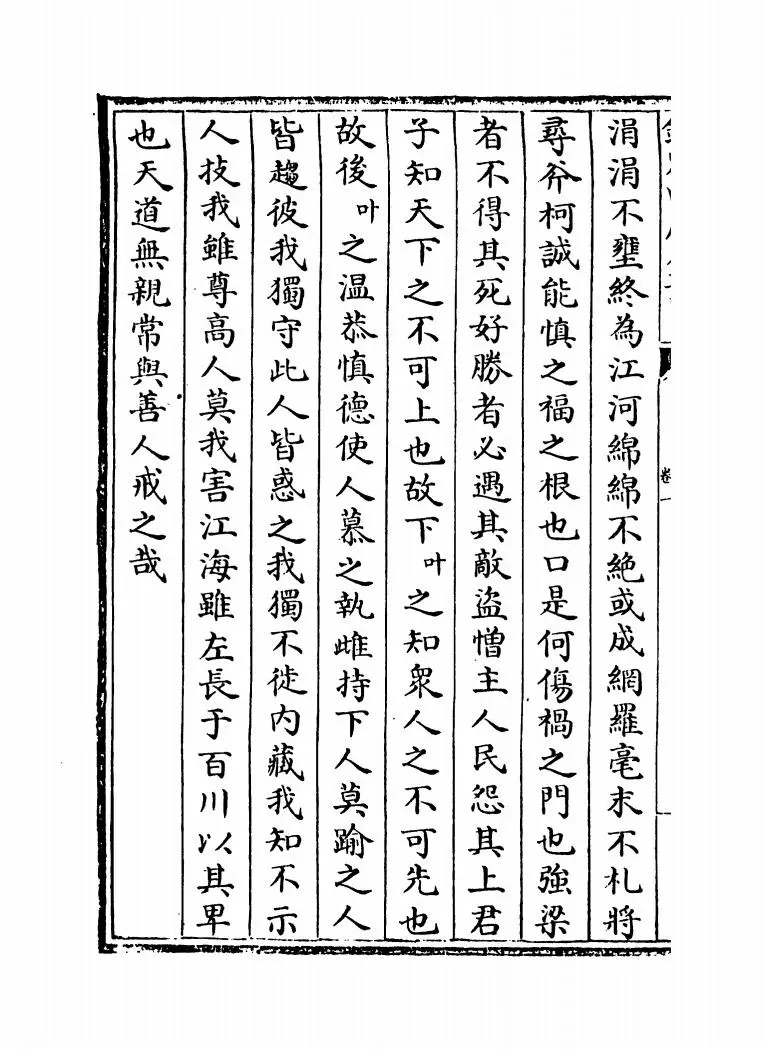 涓涓不壅終為江河綿綿不絶或成網羅毫末不札將
尋斧柯誠能慎之福之根也口是何傷禍之門也強梁
者不得其死好勝者必遇其敵盜憎主人民怨其上君
子知天下之不可上也故下叶之知衆人之不可先也
故後叶之温恭慎德使人慕之執雌持下人莫踰之人
皆趨彼我獨守此人皆惑之我獨不徙内藏我知不示
人技我雖尊高人莫我害江海雖左長于百川以其卑
也天道無親常與善人戒之哉
卷一